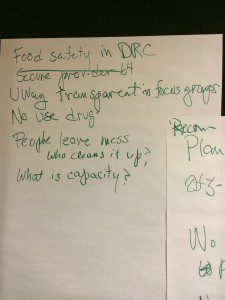 Food safety in DRC
Secure provider
UWay transparent in focus groups
No use drugs
People leave mess
Who cleans it up?
What is capacity?
Recom
Plan
No